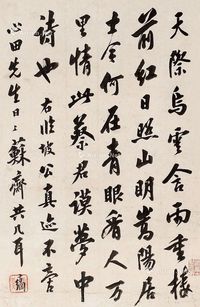 天際烏雲含雨重樓
前紅日照山明嵩陽居
士今何在青眼看人萬
里情此蔡君謨夢中
詩也 右臨坡公真迹不啻
心田先生日日蘇齋共几耳